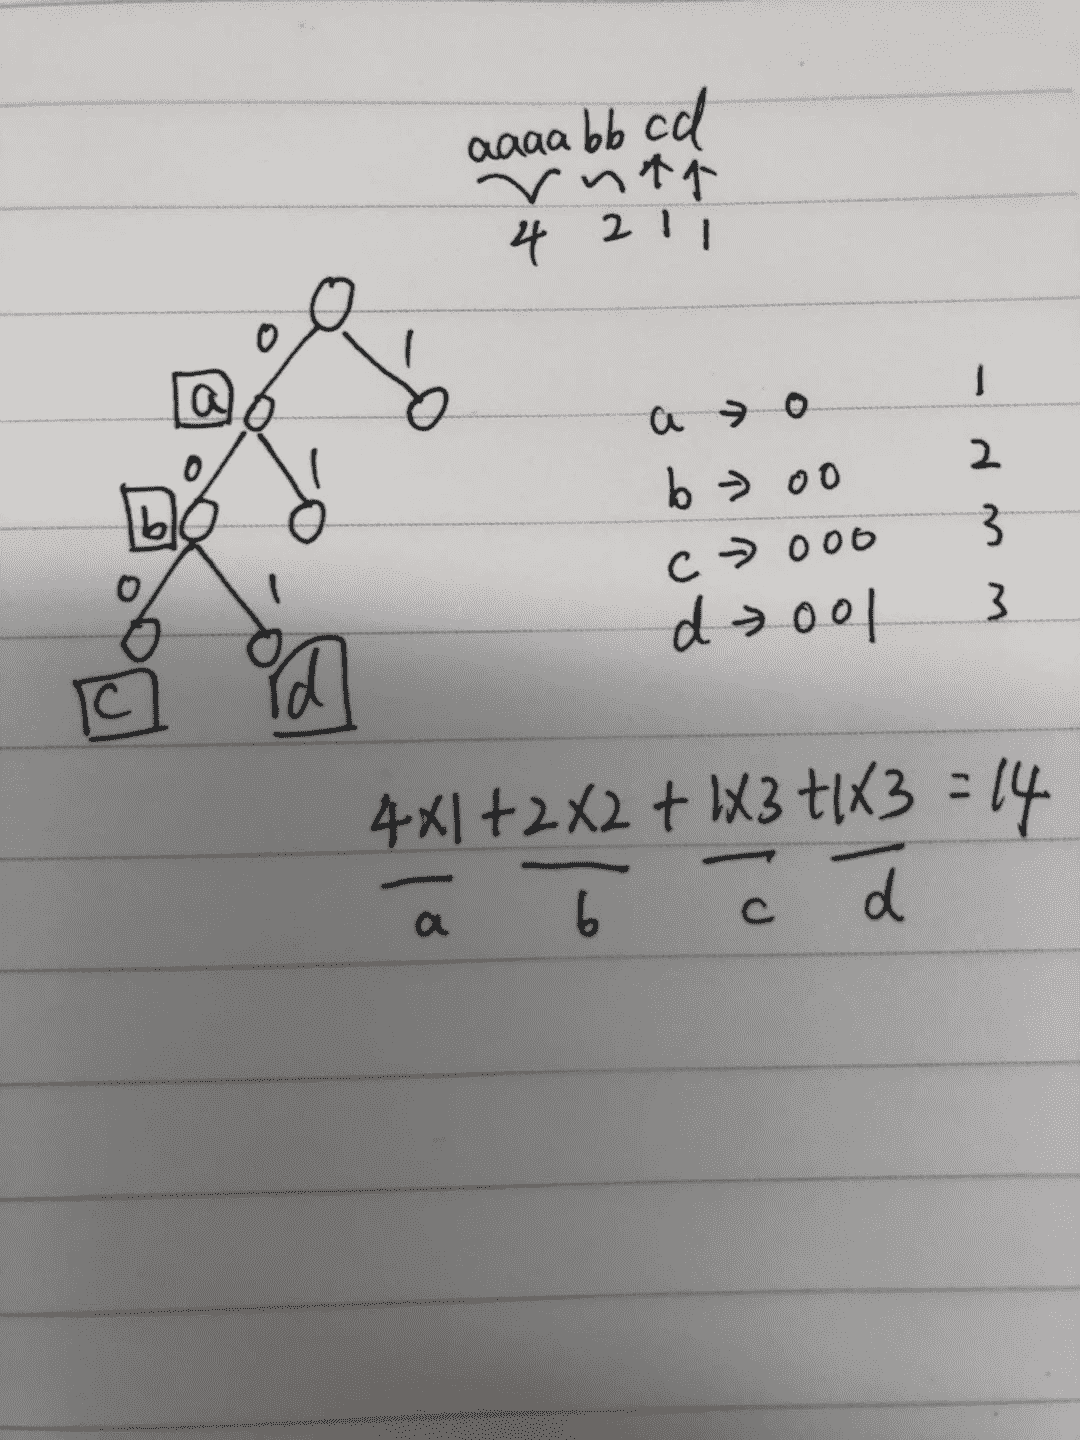 aaaa bb cd
4 2 1 1
0 1
a
0 1
b
0 1
c d
a → 0 1
b → 00 2
c → 000 3
d → 001 3
4×1 + 2×2 + 1×3 + 1×3 = 14
a b c d